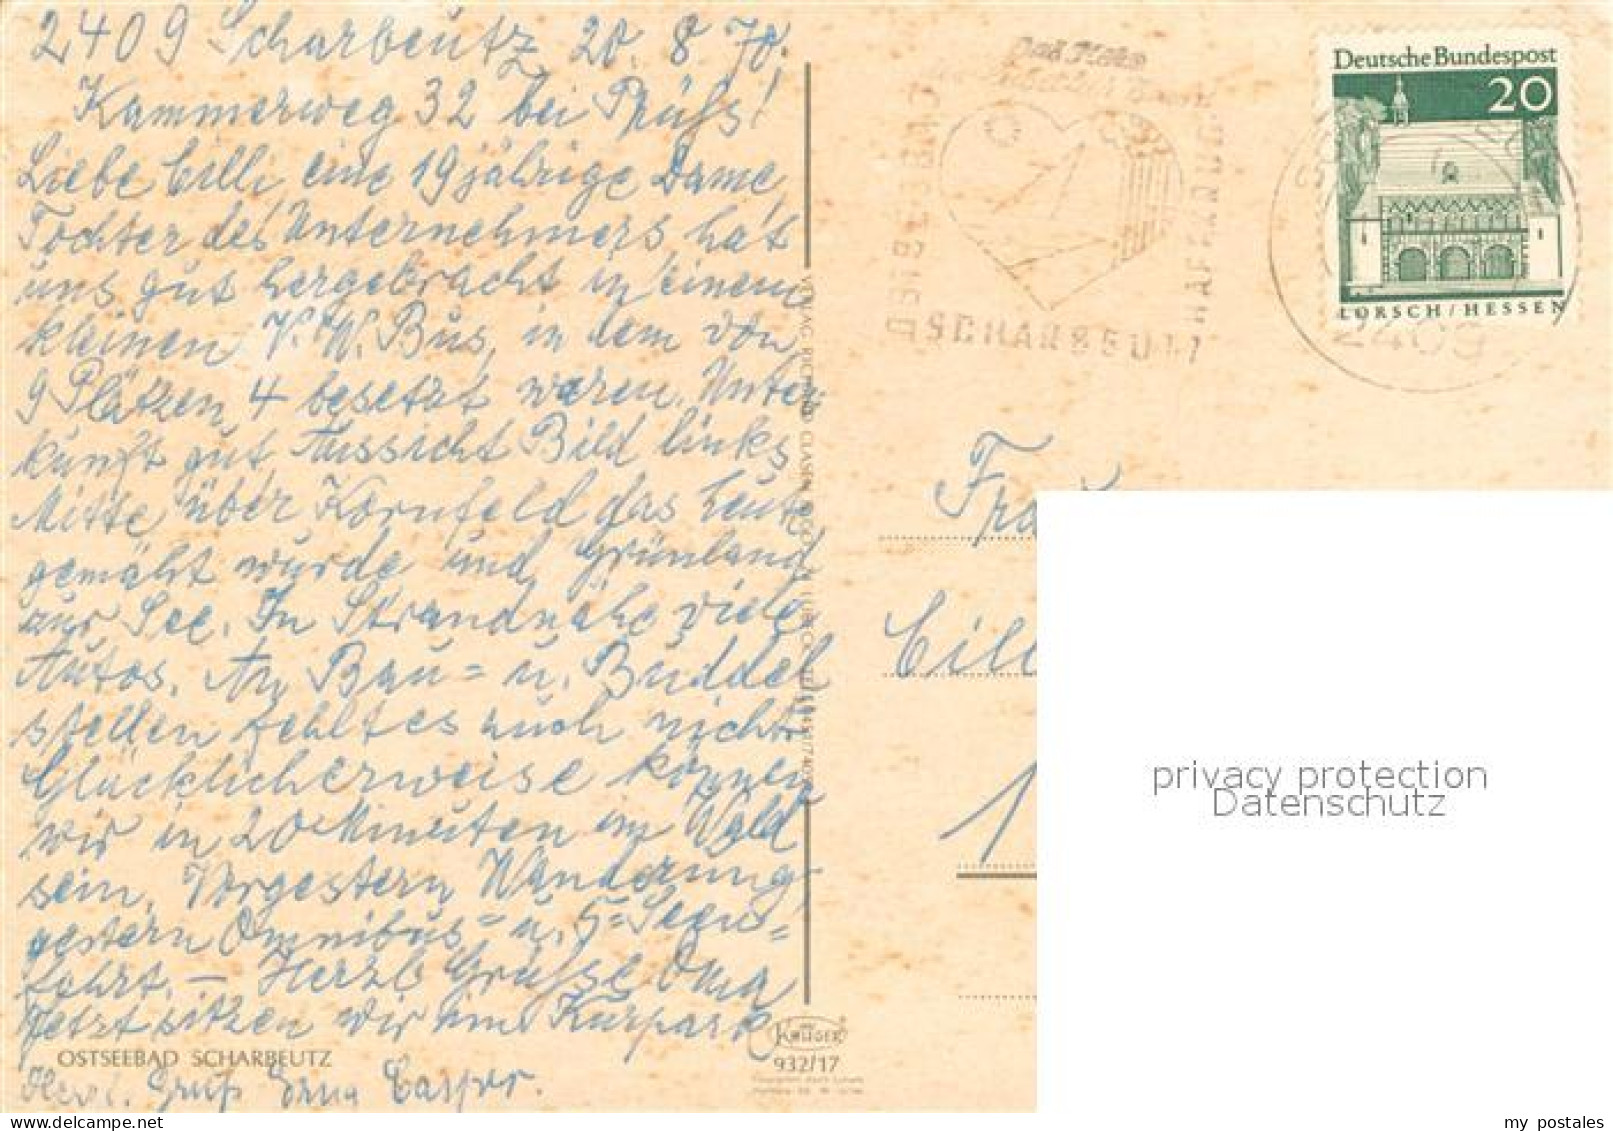 2409 Scharbeutz, 20. 8. 70.
Kammerweg 32 bei Prühs!
Liebe Cilli, eine 19jährige Dame,
Tochter des Unternehmers, hat
uns gut hergebracht in einem
kleinen V.W. Bus, in dem von
9 Plätzen 4 besetzt waren. Unter-
kunft gut, Aussicht Bild links
Mitte über Kornfeld das heute
gemäht wurde und Grünland
zur See. In Strandnähe viele
Autos. An Bau= u. Buddel
stellen fehlt es auch nicht.
Glücklicherweise können
wir in 20 Minuten im Wald
sein. Vorgestern Wanderung,
gestern Omnibus= u. 5=Seen=
fahrt. — Herzl. Grüße Oma
Jetzt sitzen wir im Kurpark
OSTSEEBAD SCHARBEUTZ
Herzl. Gruß Erna Casper.
VERLAG RICHARD CLASEN
KRÜGER
932/17
SCHARBEUTZ
HAFFKRUG
OSTSEEBAD
Deutsche Bundespost
20
LORSCH/HESSEN
2409
Frau
Cilli
1
privacy protection
Datenschutz
my postales